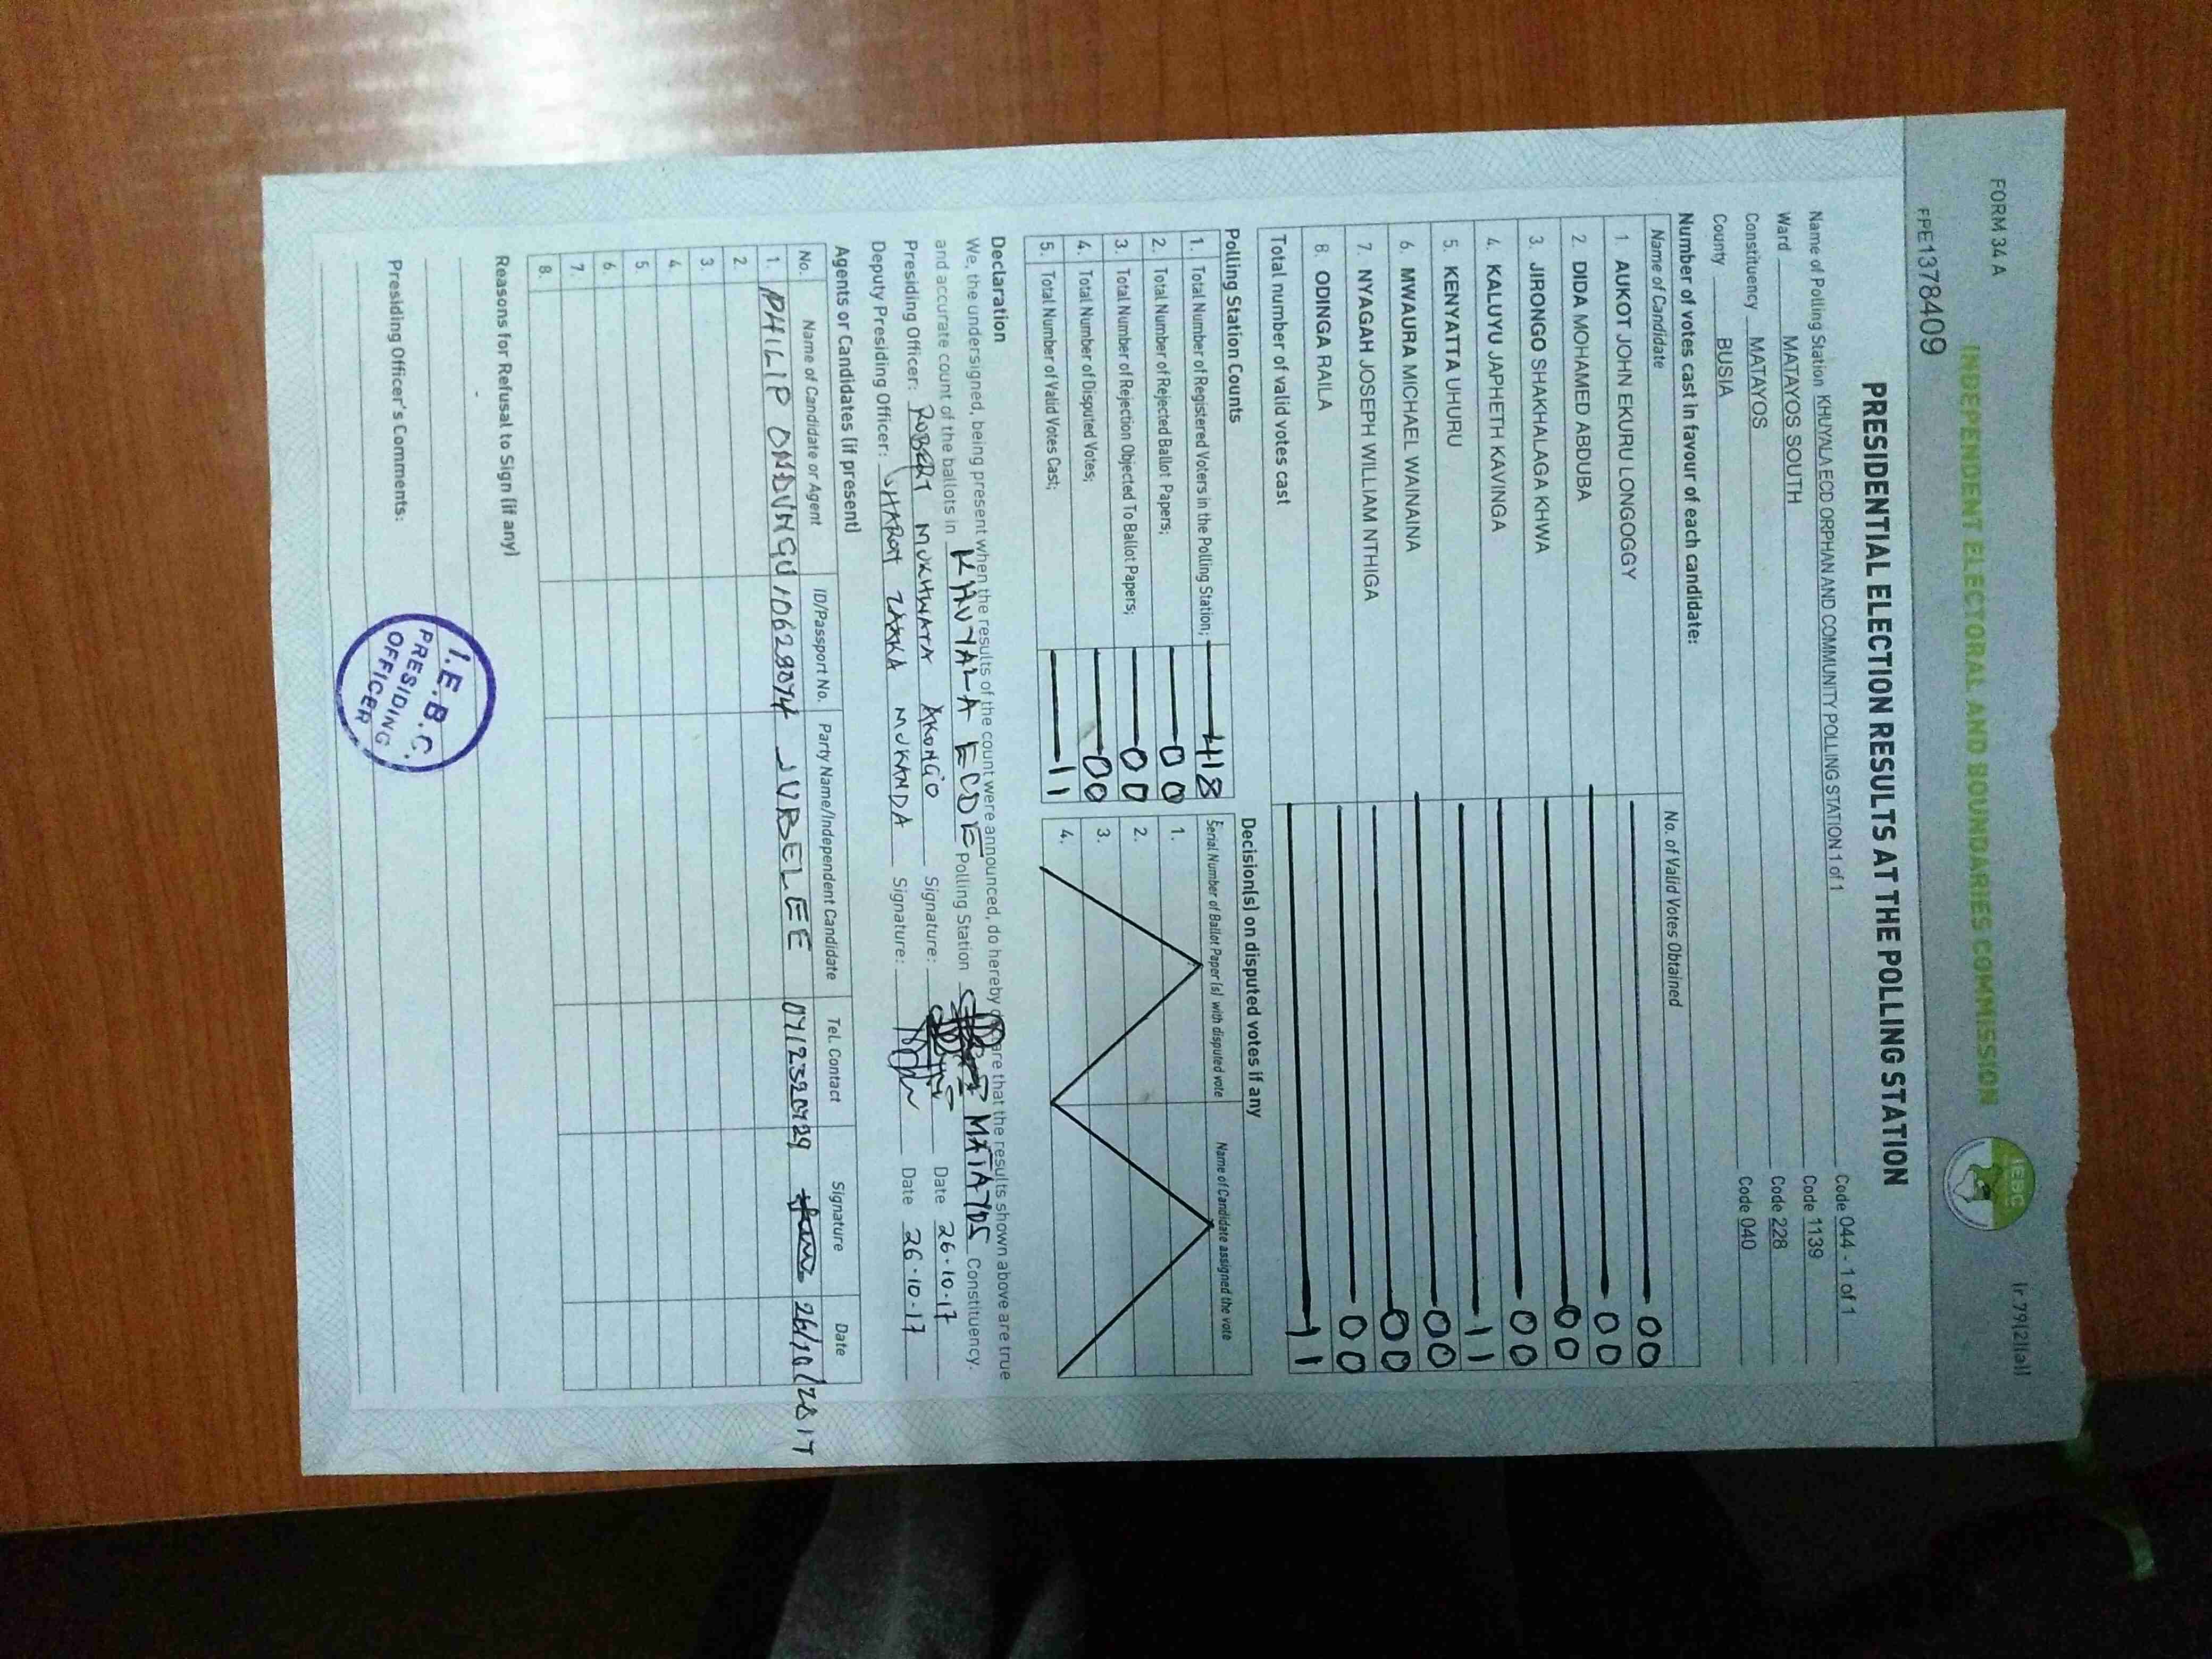 FORM 34 A
INDEPENDENT ELECTORAL AND BOUNDARIES COMMISSION
IEBC
(r 79(2)(a))
FPE1378409
PRESIDENTIAL ELECTION RESULTS AT THE POLLING STATION
Name of Polling Station KHUYALA ECD ORPHAN AND COMMUNITY POLLING STATION 1 of 1 Code 044 - 1 of 1
Ward MATAYOS SOUTH Code 1139
Constituency MATAYOS Code 228
County BUSIA Code 040
Number of votes cast in favour of each candidate:
Name of Candidate No. of Valid Votes Obtained
1. AUKOT JOHN EKURU LONGOGGY 00
2. DIDA MOHAMED ABDUBA 00
3. JIRONGO SHAKHALAGA KHWA 00
4. KALUYU JAPHETH KAVINGA 00
5. KENYATTA UHURU 11
6. MWAURA MICHAEL WAINAINA 00
7. NYAGAH JOSEPH WILLIAM NTHIGA 00
8. ODINGA RAILA 00
Total number of valid votes cast 11
Polling Station Counts
1. Total Number of Registered Voters in the Polling Station; 418
2. Total Number of Rejected Ballot Papers; 00
3. Total Number of Rejection Objected To Ballot Papers; 00
4. Total Number of Disputed Votes; 00
5. Total Number of Valid Votes Cast; 11
Decision(s) on disputed votes if any
Serial Number of Ballot Paper(s) with disputed vote Name of Candidate assigned the vote
1.
2.
3.
4.
Declaration
We, the undersigned, being present when the results of the count were announced, do hereby declare that the results shown above are true
and accurate count of the ballots in KHUYALA ECDE Polling Station MATAYOS Constituency.
Presiding Officer: ROBERT MUKHWATA AKONGO Signature: Date 26-10-17
Deputy Presiding Officer: SHARON ZAKKA MUKANDA Signature: Date 26-10-17
Agents or Candidates (if present)
No. Name of Candidate or Agent ID/Passport No. Party Name/Independent Candidate Tel. Contact Signature Date
1. PHILIP ONDUNGU 10628074 JUBELEE 0712320729 26/10/2017
2.
3.
4.
5.
6.
7.
8.
Reasons for Refusal to Sign (if any)
Presiding Officer's Comments:
I.E.B.C.
PRESIDING
OFFICER